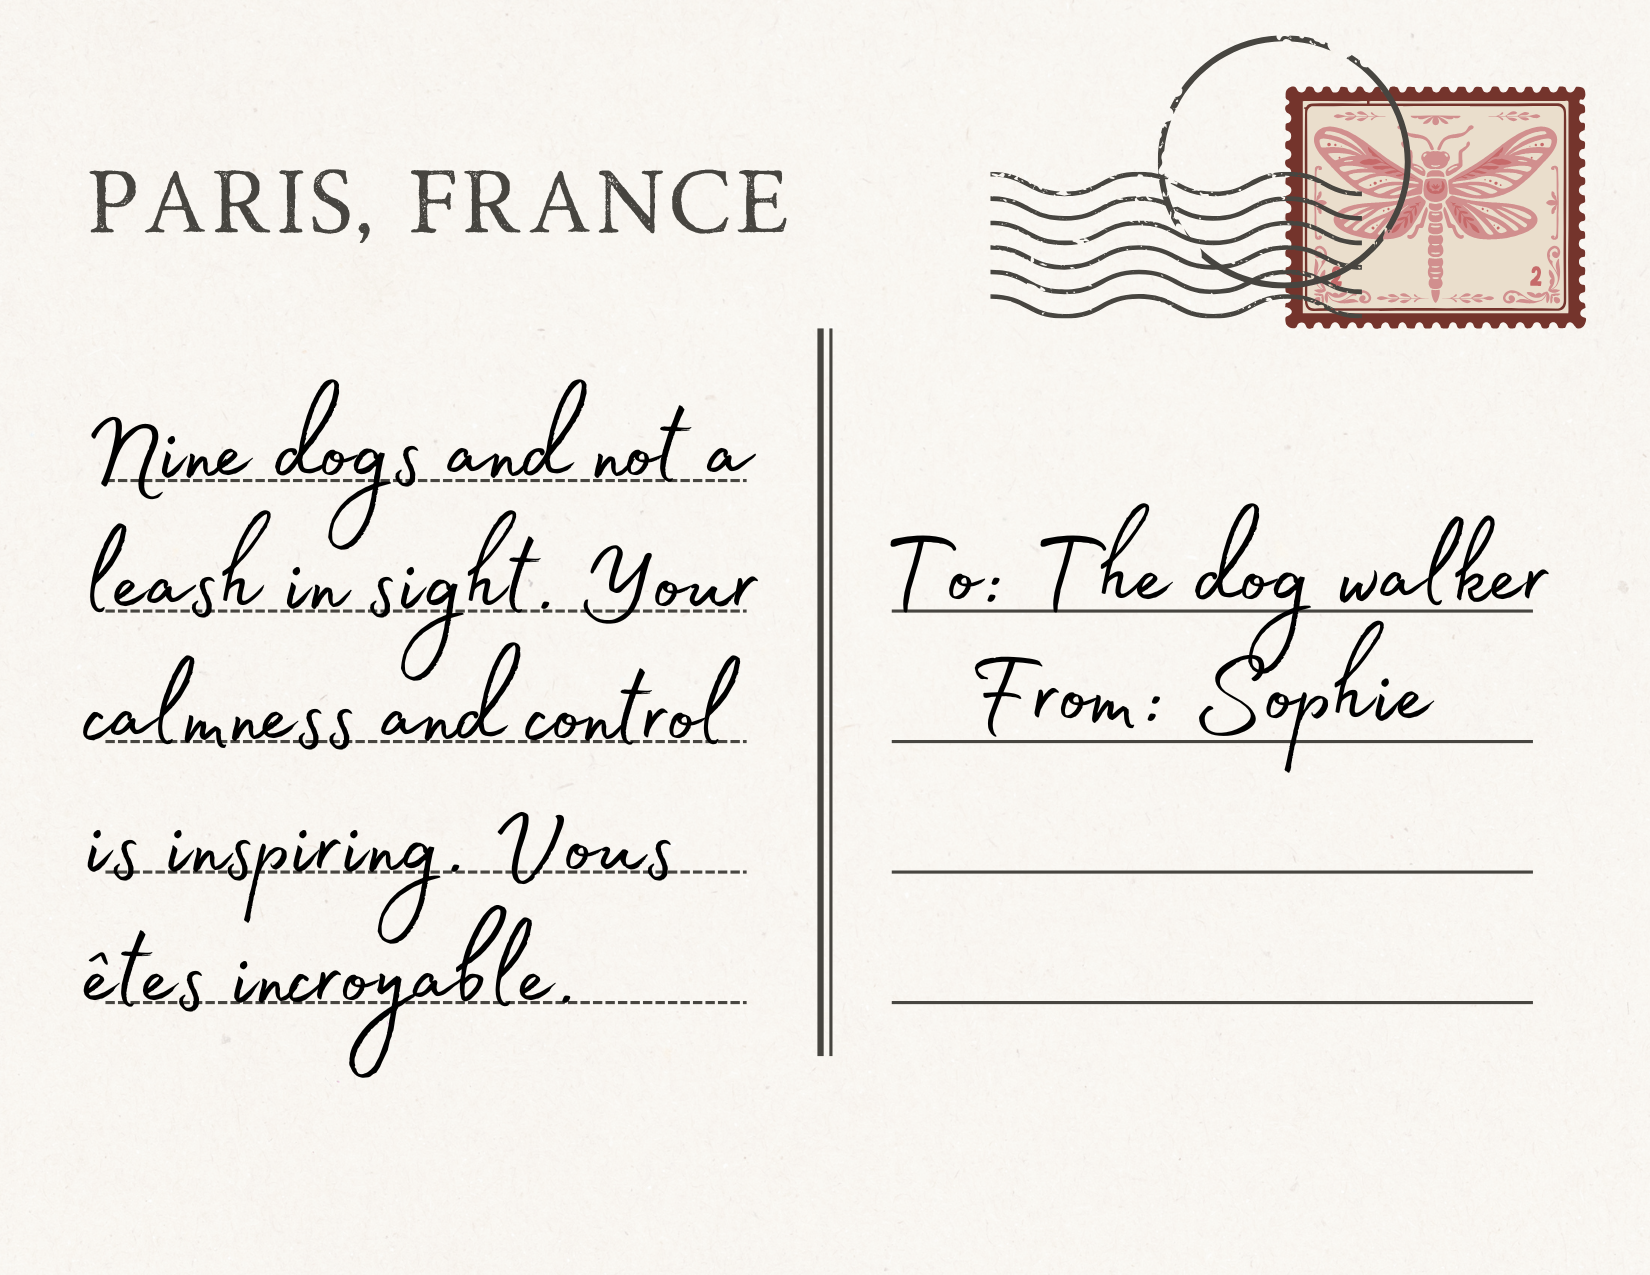 PARIS, FRANCE
2 2
Nine dogs and not a
leash in sight. Your
calmness and control
is inspiring. Vous
êtes incroyable.
To: The dog walker
From: Sophie